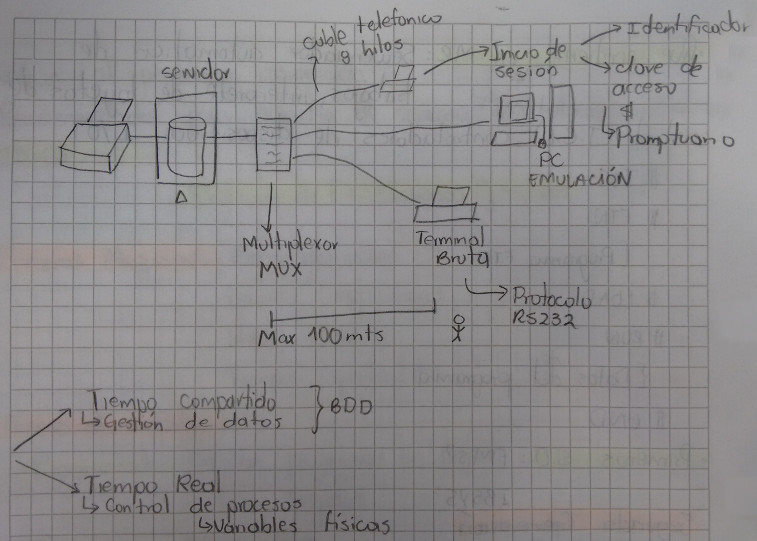 cable telefonico
8 hilos
servidor
Inicio de
sesión
Identificador
clave de
acceso
$
Promptuario
PC
EMULACIÓN
Δ
Multiplexor
MUX
Terminal
Bruta
Protocolo
RS232
Max 100mts
Tiempo compartido
Gestión de datos
BDD
Tiempo Real
Control de procesos
Variables físicas